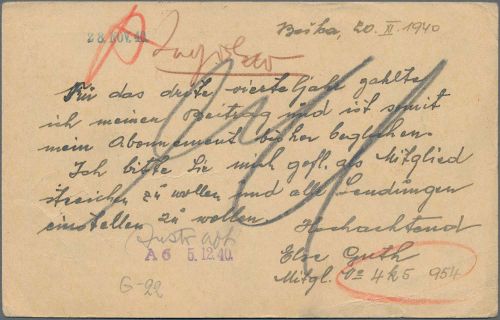 28. NOV. 40.
Beška, 20. XI. 1940
Für das dritte vierteljahr zahlte
ich meinen Beitrag und ist somit
mein Abonnement bisher beglichen.
Ich bitte Sie mich gefl. als Mitglied
streichen zu wollen und alle Sendungen
einstellen zu wollen.
Hochachtend
Else Guth
Mitgl. No 4k5 954
A6 5.12.40.
G-22